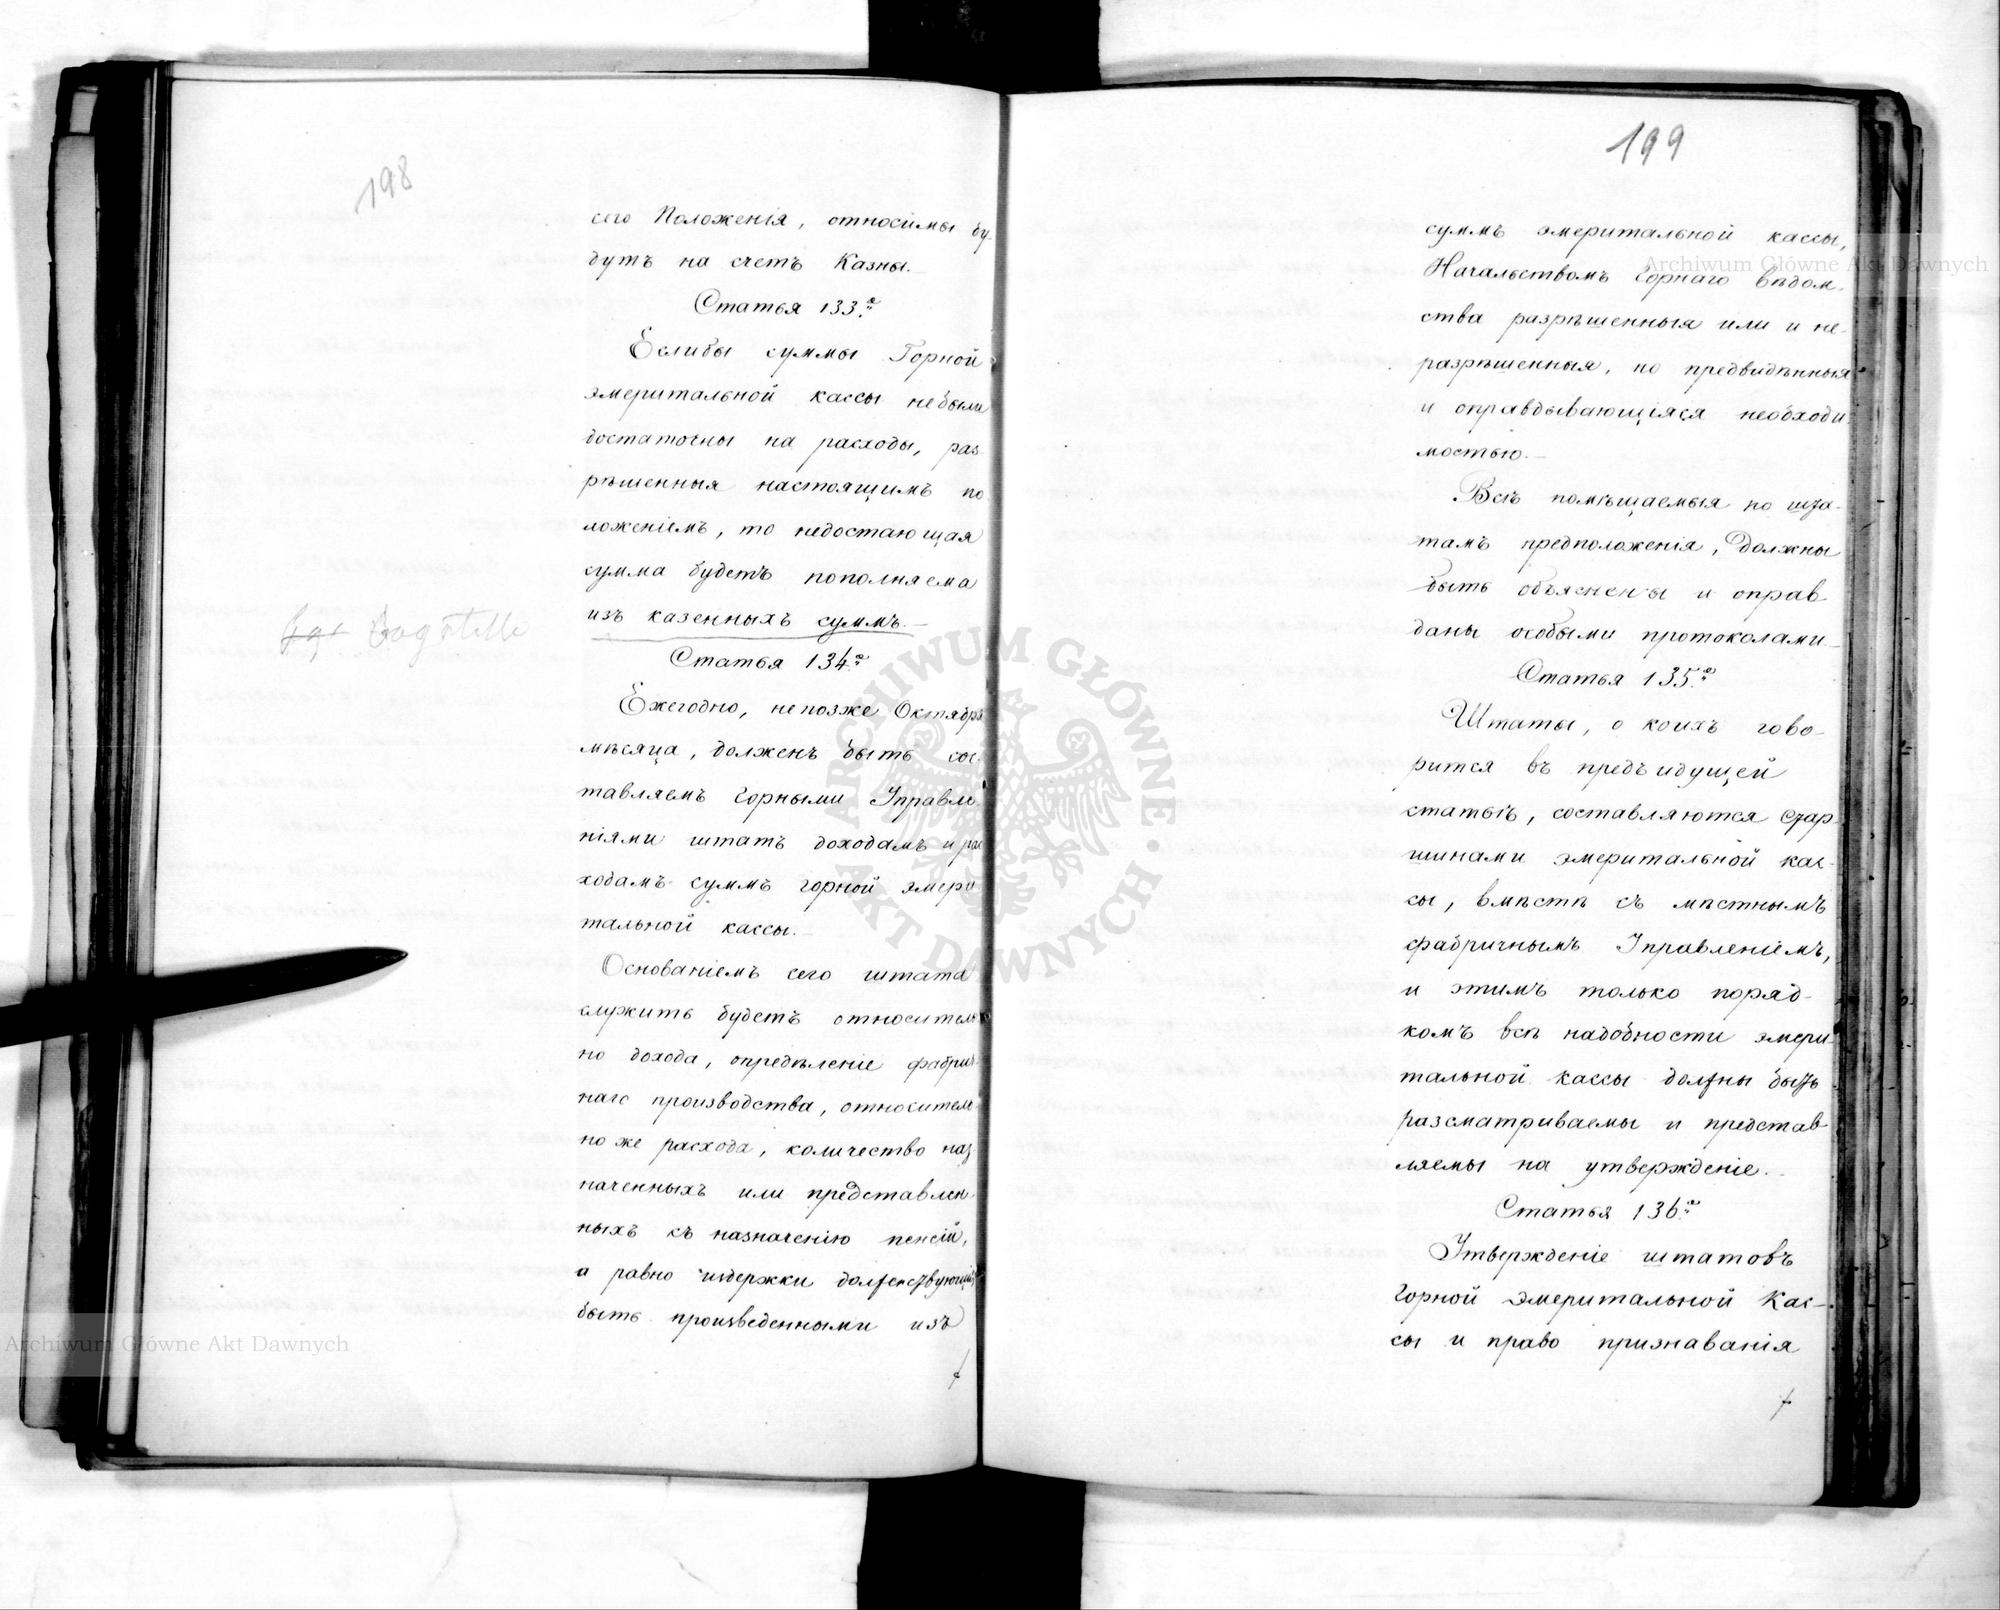 198
сего Положенія, относимы бу-
дутъ на счетъ Казны.
Статья 133.я
Еслибы суммы Горной
эмеритальной кассы небыли
достаточны на расходы, раз-
рѣшенныя настоящимъ по
ложеніемъ, то недостающая
сумма будетъ пополняема
изъ казенныхъ суммъ.
Bagatelle
Статья 134.я
Ежегодно, непозже Октября
мѣсяца, долженъ быть сос-
тавляемъ Горными Управле-
ніями штатъ доходамъ и рас
ходамъ суммъ горной эмери-
тальной кассы.
Основаніемъ сего штата
служить будетъ относитель
но дохода, опредѣленіе фабрич-
наго производства, относитель-
но же расхода, количество наз
наченныхъ или представлен-
ныхъ къ назначенію пенсій,
а равно издержки долженствующія
быть произведенными изъ
199
суммъ эмеритальной кассы,
Начальствомъ Горнаго Вѣдом-
ства разрѣшенныя или и не-
разрѣшенныя, но предвидѣнныя
и оправдывающіяся необходи-
мостью.
Всѣ помѣщаемыя по шта-
тамъ предположенія, должны
быть объяснены и оправ
даны особыми протоколами.
Статья 135.я
Штаты, о коихъ гово-
рится въ предъидущей
статьѣ, составляются Стар-
шинами эмеритальной кас-
сы, вмѣстѣ съ мѣстнымъ
фабричнымъ Управленіемъ,
и этимъ только поряд-
комъ всѣ надобности эмери-
тальной кассы должны быть
разсматриваемы и представ
ляемы на утвержденіе.
Статья 136.я
Утвержденіе штатовъ
Горной Эмеритальной Кас-
сы и право признаванія
Archiwum Główne Akt Dawnych
Archiwum Główne Akt Dawnych
ARCHIWUM GŁÓWNE AKT DAWNYCH